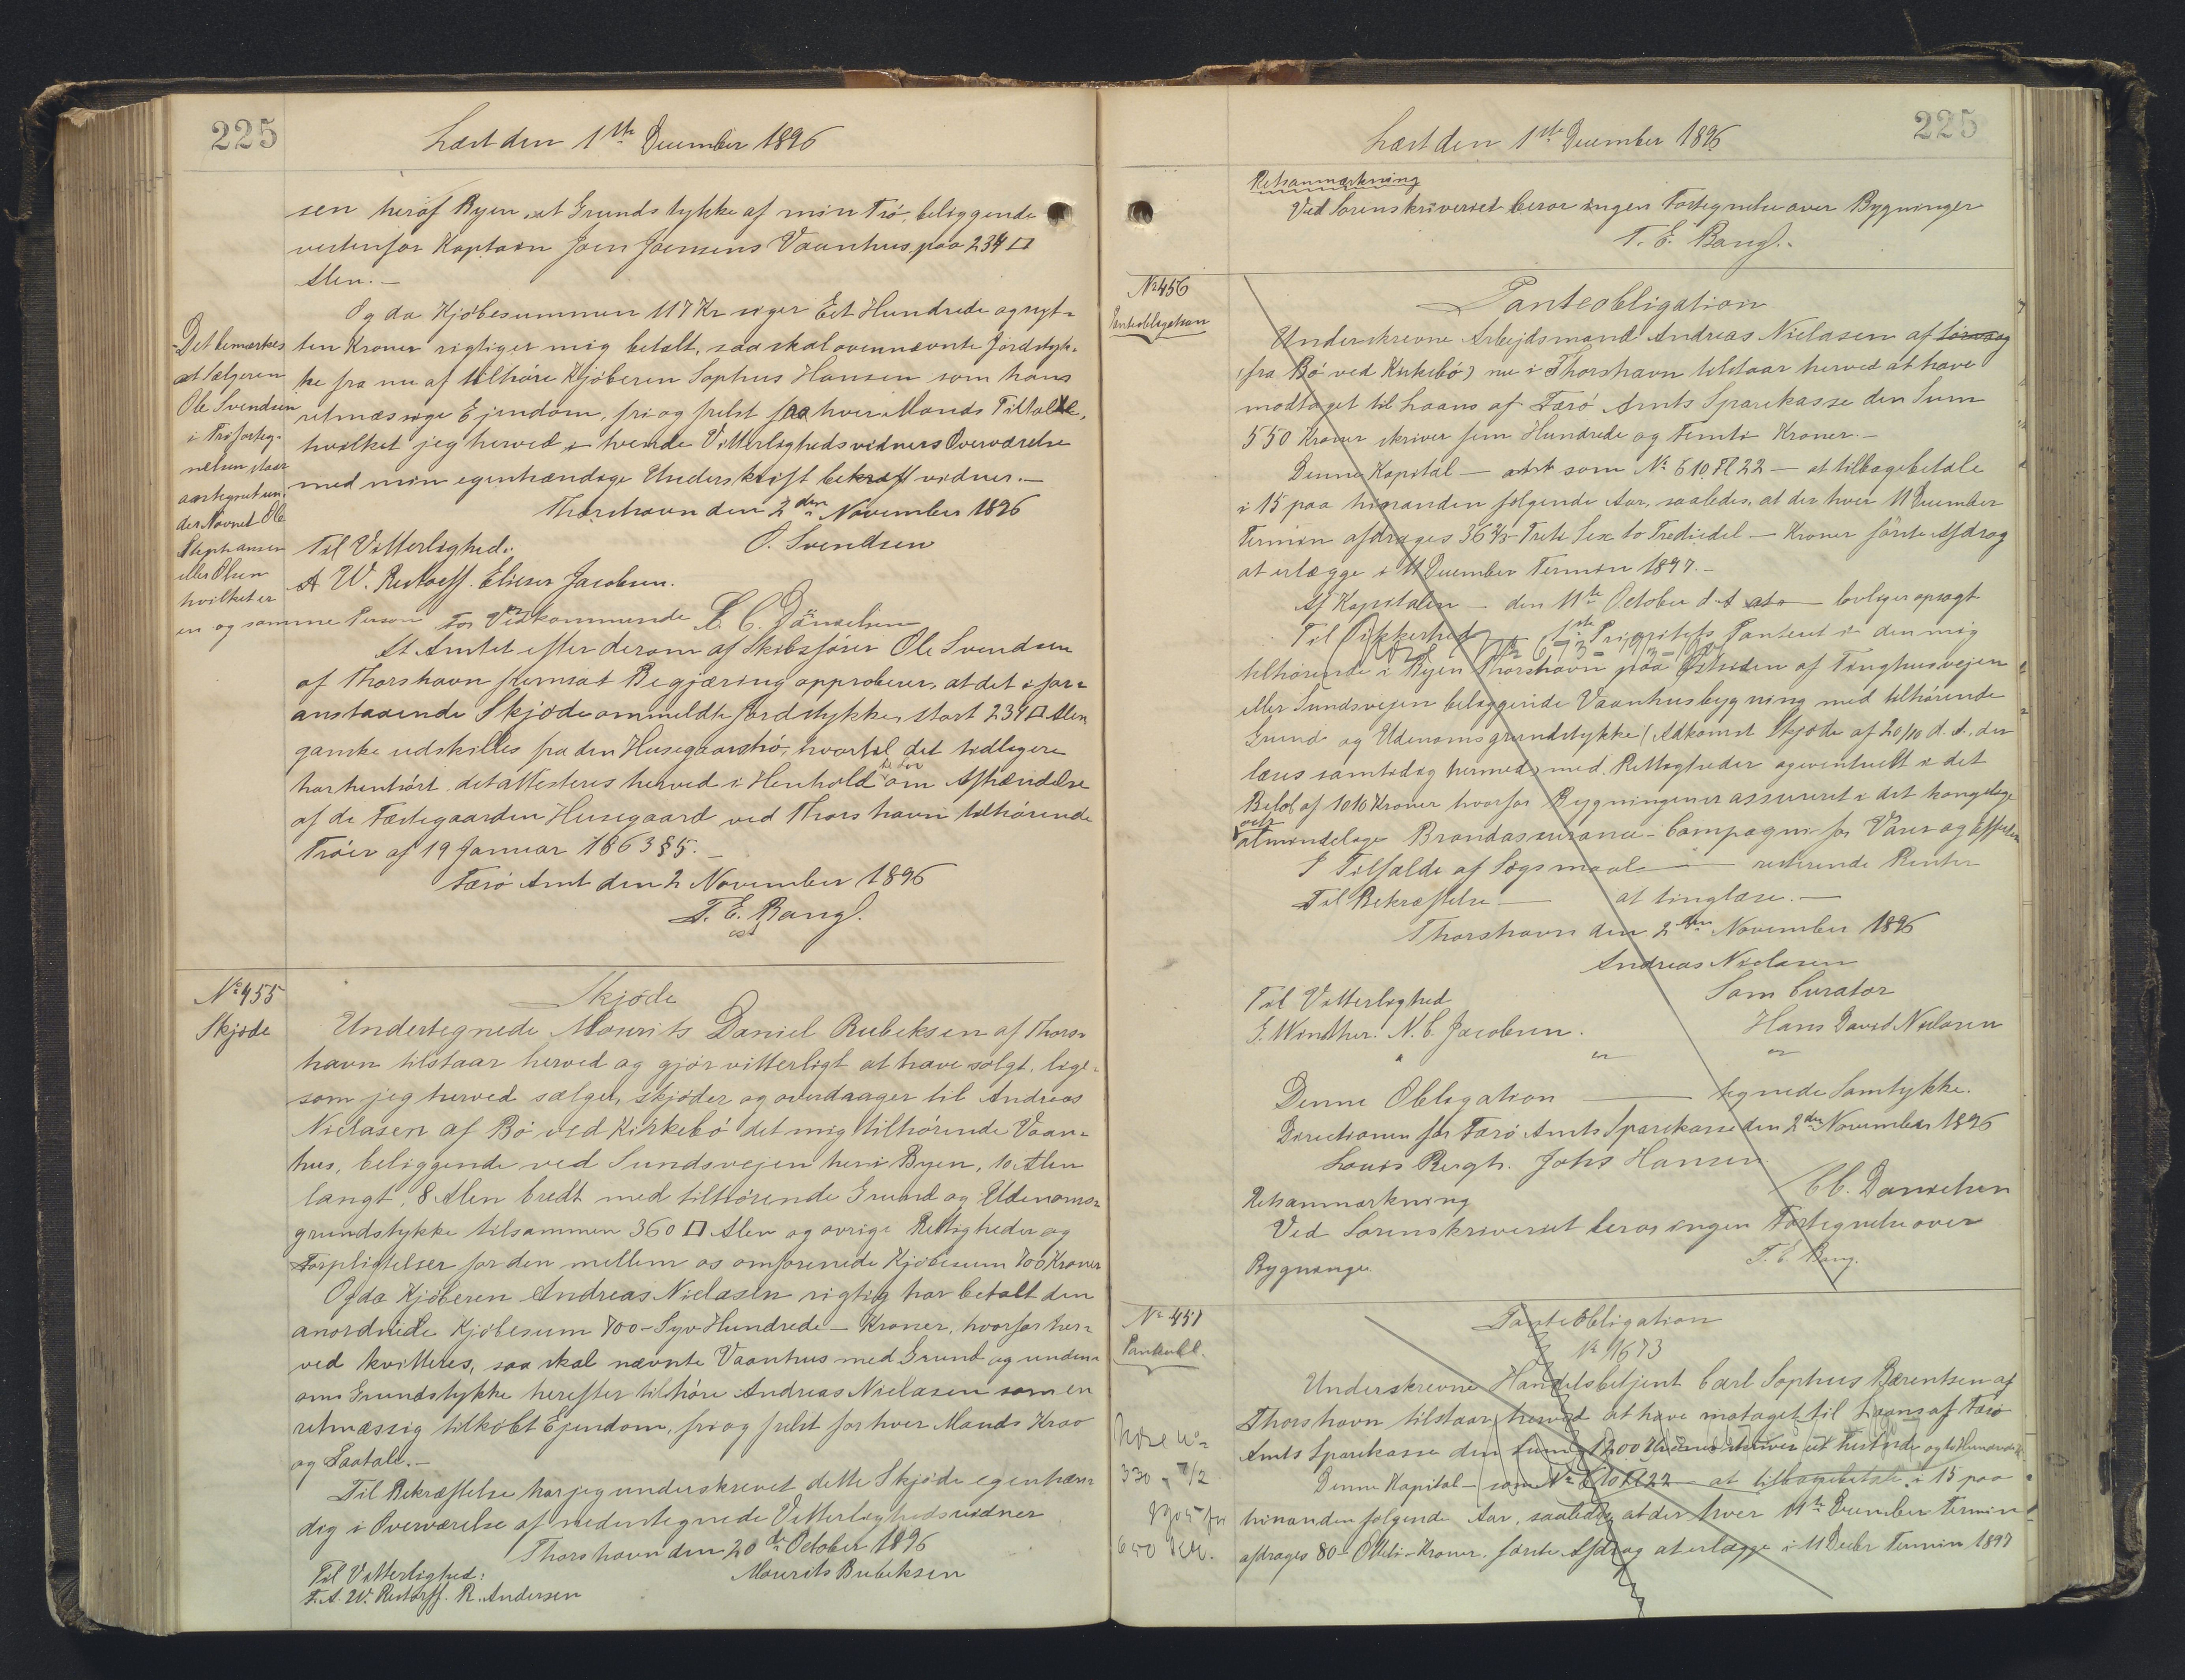 225
Læst den 1ste December 1896
sen heraf Byen, et Grundstykke af min Trö, beliggende
vestenfor Kaptain Joen Joensens Vaanhus, paa 234 □
Alen. —
Og da Kjöbesummen 117 Kr siger Eet Hundrede og syt-
ten Kroner rigtig er mig betalt, saa skal ovennævnte Jordstyk-
ke fra nu af tilhöre Kjöberen Sophus Hansen som hans
retmæssige Ejendom, fri og frelst for hver Mands Tiltale,
hvilket jeg herved i tvende Vitterlighedsvidners Overværelse
med min egenhændige Underskrift bekræftvidner. —
Thorshavn den 2den November 1896
Til Vitterlighed: O. Svendsen
A W. Restorff. Elieser Jacobsen.
Det bemærkes
at Sælgeren
Ole Svendsen
i Tröforteg-
nelsen staar
antegnet un-
der Navnet Ole
Stephansen
eller Olsen
hvilket er
en og samme Person For Vedkommende C. C. Danielsen
At Amtet efter derom af Skibsförer Ole Svendsen
af Thorshavn fremsat Begjæring approberer, at det i for-
anstaaende Skjöde ommeldte Jordstykke, stort 234 □ Alen
ganske udskilles fra den Husegaardtrö, hvortil det tidligere
har henhört, det attesteres herved i Henhold til Lov om Afhændelse
af de Fæstegaarden Husegaard ved Thorshavn tilhörende
Tröer af 19 Januar 1863 § 5. —
Færö Amt den 2 November 1896
T. E. Bang.
No 455
Skjöde
Skjöde
Undertegnede Mourits Daniel Rubeksen af Thors-
havn tilstaar herved og gjör vitterligt at have solgt, lige-
som jeg herved sælger, skjöder og overdrager til Andreas
Nielasen af Bö ved Kirkebö det mig tilhörende Vaan-
hus, beliggende ved Sundsvejen her i Byen, 10 Alen
langt, 8 Alen bredt med tilhörende Grund og Udenoms-
grundstykke tilsammen 360 □ Alen og övrige Rettigheder og
Forpligtelser for den mellem os omforenede Kjöbesum 700 Kroner
Og da Kjöberen Andreas Nielasen rigtig har betalt den
anordnede Kjöbesum 700 – Syv Hundrede – Kroner, hvorfor her-
ved kvitteres, saa skal nævnte Vaanhus med Grund og uden-
oms Grundstykke herefter tilhöre Andreas Nielasen som en
retmæssig tilköbt Ejendom, fri og frelst for hver Mands Krav
og Paatale. —
Til Bekræftelse har jeg underskrevet dette Skjöde egenhæn-
dig i Overværelse af nedentegnede Vitterlighedsvidner
Thorshavn den 20de October 1896
Til Vitterlighed: Mourits Rubeksen
F. A. W. Restorff. R. Andersen
225
Læst den 1ste December 1896
Retsanmærkning
Ved Sorenskriveriet beror ingen Fortegnelse over Bygninger
T. E. Bang. —
No 456
Panteobligation
Panteobligation
Underskrevne Arbejdsmand Andreas Nielasen af
(fra Bö ved Kirkebö) nu i Thorshavn tilstaar herved at have
modtaget til Laans af Færö Amts Sparekasse den Sum
550 Kroner skriver fem Hundrede og Femti Kroner. —
Denne Kapital — som No 610 Fl 22 — at tilbagebetale
i 15 paa hinanden fölgende Aar, saaledes, at der hver 11 December
Termin afdrages 36 2/3 – Treti Sex to Trediedel — Kroner förste Afdrag
at erlægge i 11 December Termin 1897. —
Af Kapitalen — den 11te October d. A. — lovlig er opsagt
Til Sikkerhed — 1ste Prioritets Panteret i den mig
tilhörende i Byen Thorshavn paa Östsiden af Tinghusvejen
eller Sundsvejen beliggende Vaanhusbygning med tilhörende
Grund og Udenomsgrundstykke (Adkomst Skjöde af 20/10 d. A. der
læses samtidig hermed) med Rettigheder og eventuelt i det
Belöb af 1010 Kroner hvorfor Bygningen er assureret i det kongelige
octr
almindelige Brandassurance-Compagni for Varer og Effecter
I Tilfælde af Sögsmaal — resterende Renter
Til Bekræftelse — at tinglæse. —
Thorshavn den 2den November 1896
Andreas Nielasen
Til Vitterlighed Som Curator
E. Winther. N. C. Jacobsen. Hans David Nielasen
Denne Obligation — tegnede Samtykke.
Directionen for Færö Amts Sparekasse den 2den November 1896
Louis Bergh. Johs Hansen
C. C. Danielsen
Retsanmærkning
Ved Sorenskriveriet beror ingen Fortegnelse over
Bygninger. T. E. Bang.
No 457
Panteobl.
Panteobligation
No 1673
Underskrevne Handelsbetjent Carl Sophus Bærentsen af
Thorshavn tilstaar herved at have modtaget til Laans af Færö
Amts Sparekasse den Sum 1200 Kroner skriver et tusinde og to Hundrede
Denne Kapital — som No 610 Fl 22 — at tilbagebetale i 15 paa
hinanden fölgende Aar, saaledes at der hver 11te December Termin
afdrages 80 – Otteti – Kroner, förste Afdrag at erlægge i 11 Decbr Termin 1897
650 Kr.